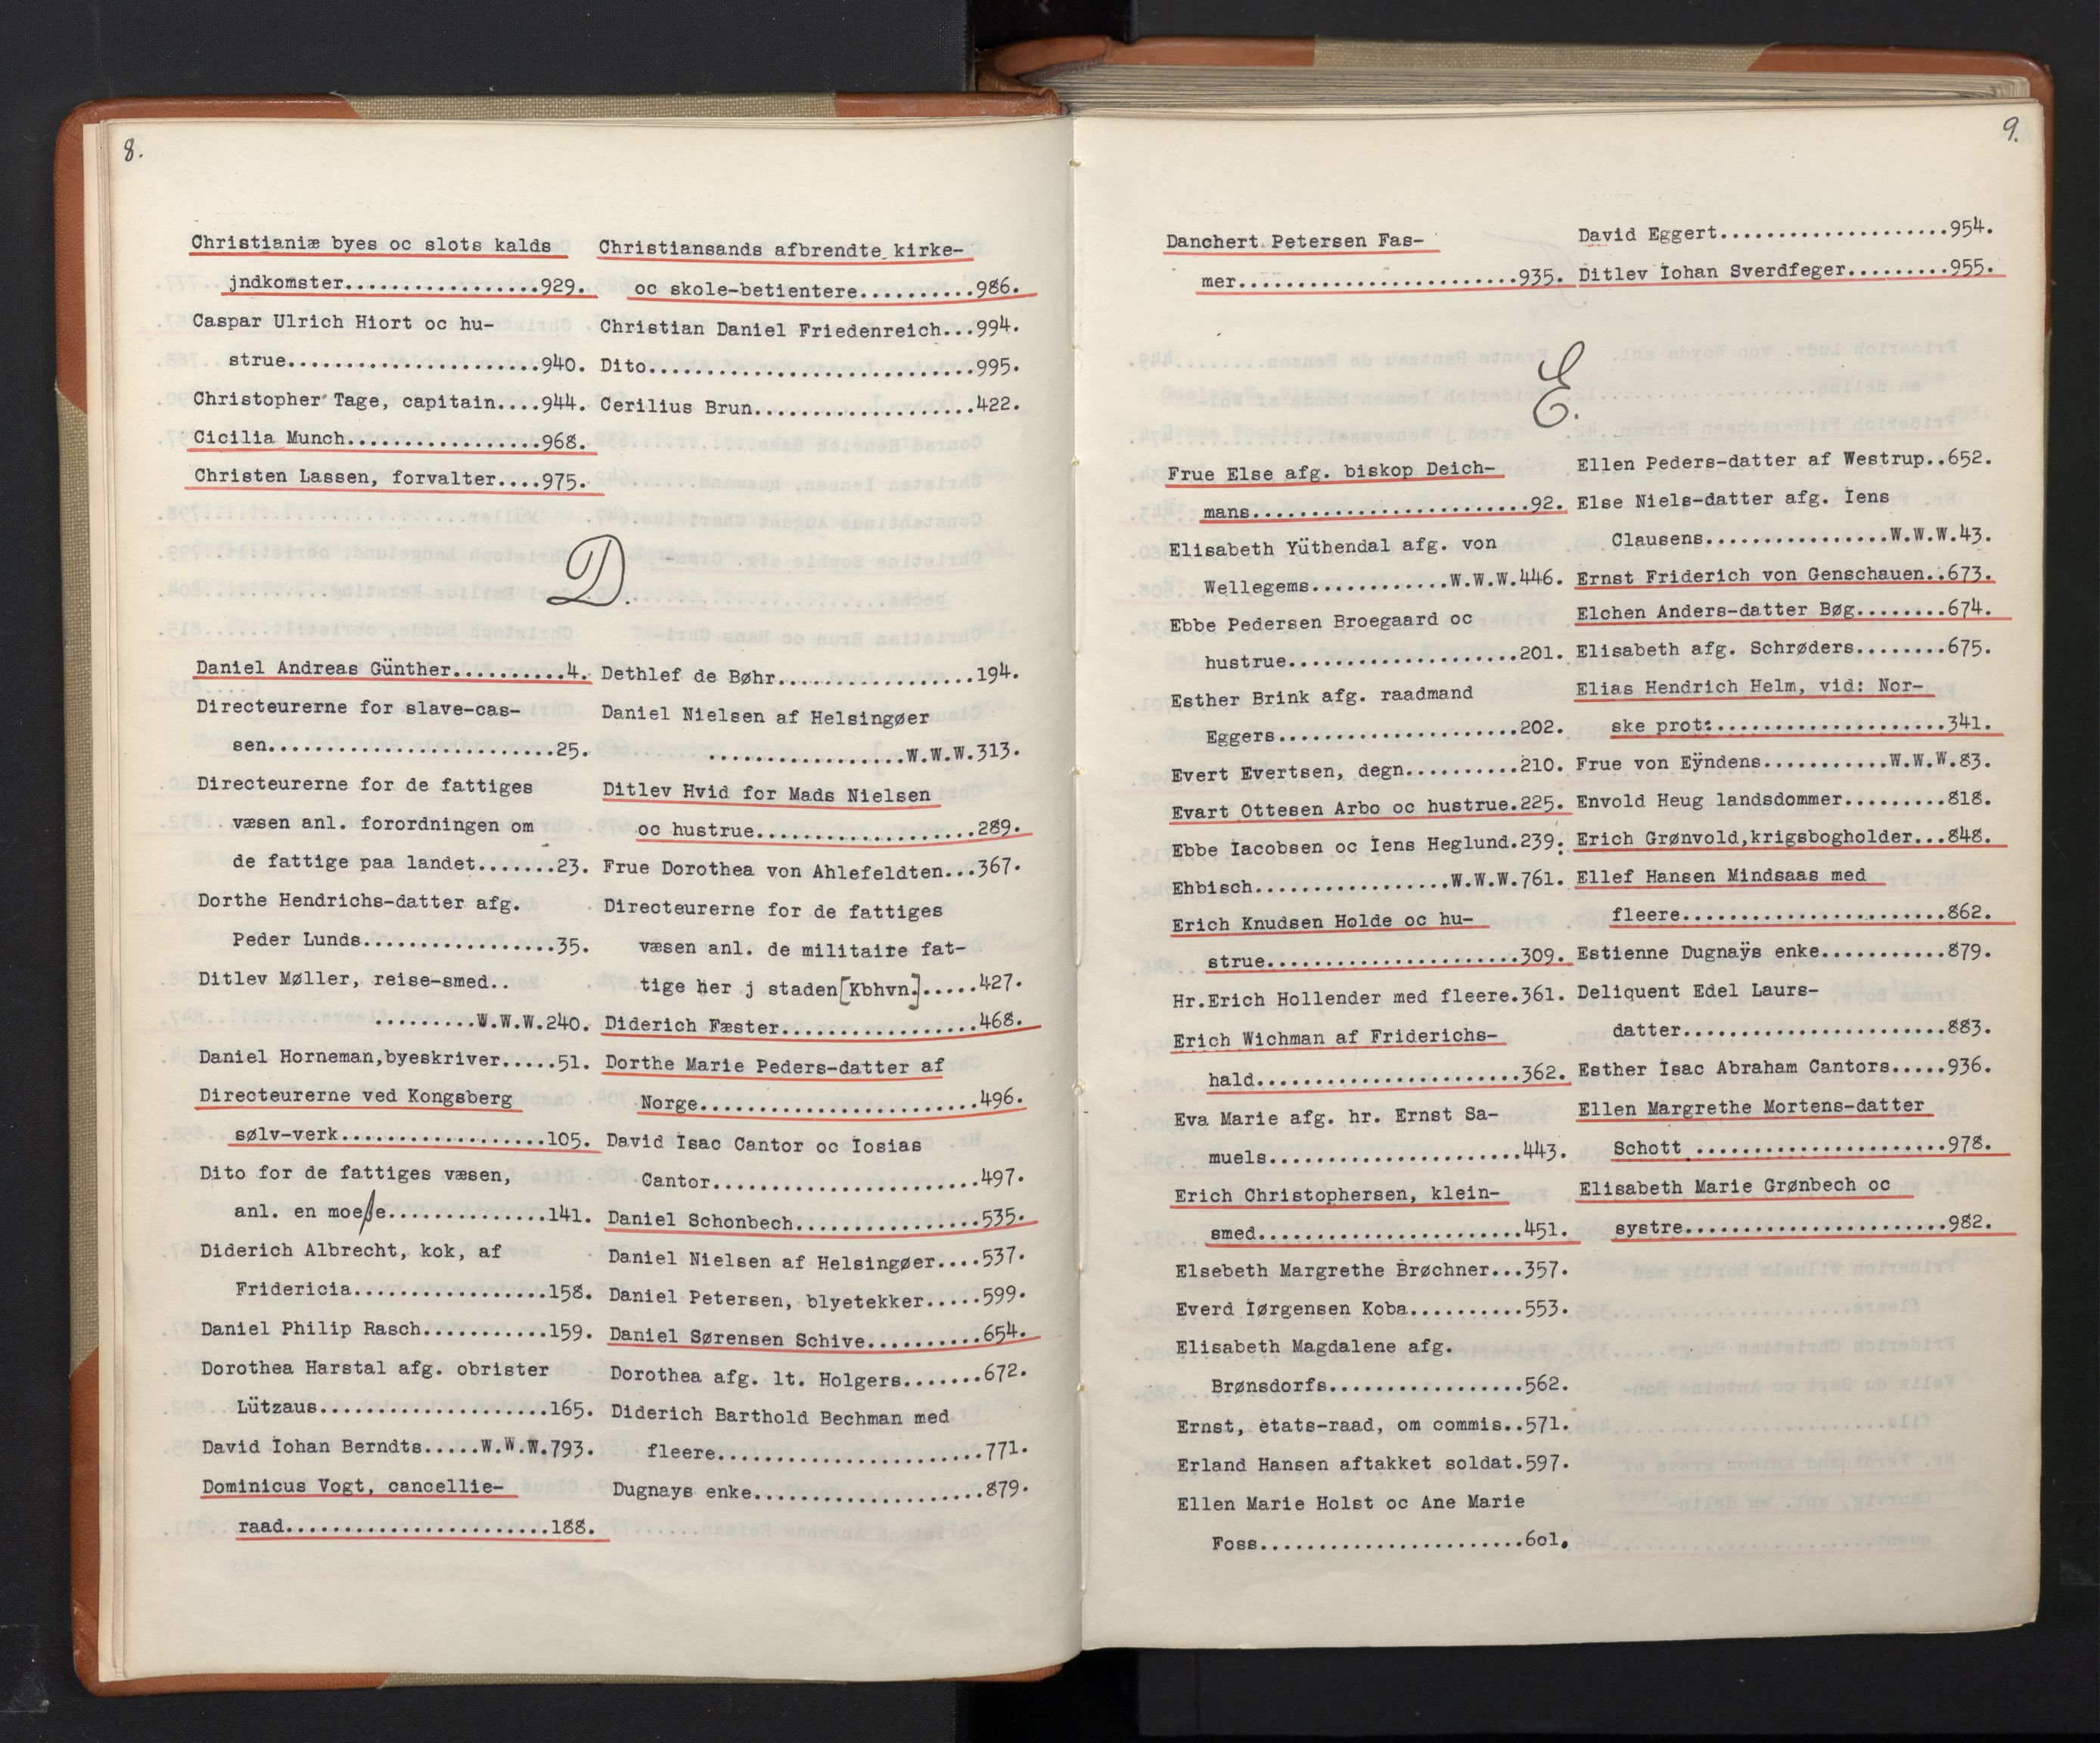 8.
Christianiæ byes oc slots kalds
jndkomster.................929.
Caspar Ulrich Hiort oc hu-
strue......................940.
Christopher Tage, capitain....944.
Cicilia Munch.................968.
Christen Lassen, forvalter....975.
Christiansands afbrendte kirke-
oc skole-betientere..........986.
Christian Daniel Friedenreich...994.
Dito............................995.
Cerilius Brun...................422.
D.
Daniel Andreas Günther..........4.
Directeurerne for slave-cas-
sen.........................25.
Directeurerne for de fattiges
væsen anl. forordningen om
de fattige paa landet.......23.
Dorthe Hendrichs-datter afg.
Peder Lunds.................35.
Ditlev Møller, reise-smed..
.........W.W.W.240.
Daniel Horneman,byeskriver.....51.
Directeurerne ved Kongsberg
sølv-verk..................105.
Dito for de fattiges væsen,
anl. en moeße..............141.
Diderich Albrecht, kok, af
Fridericia.................158.
Daniel Philip Rasch...........159.
Dorothea Harstal afg. obrister
Lützaus....................165.
David Iohan Berndts.....W.W.W.793.
Dominicus Vogt, cancellie-
raad.......................188.
Dethlef de Bøhr.................194.
Daniel Nielsen af Helsingøer
.................W.W.W.313.
Ditlev Hvid for Mads Nielsen
oc hustrue...................289.
Frue Dorothea von Ahlefeldten...367.
Directeurerne for de fattiges
væsen anl. de militaire fat-
tige her j staden[Kbhvn.].....427.
Diderich Fæster.................468.
Dorthe Marie Peders-datter af
Norge........................496.
David Isac Cantor oc Iosias
Cantor.......................497.
Daniel Schonbech................535.
Daniel Nielsen af Helsingøer....537.
Daniel Petersen, blyetekker.....599.
Daniel Sørensen Schive..........654.
Dorothea afg. lt. Holgers.......672.
Diderich Barthold Bechman med
fleere.......................771.
Dugnays enke....................879.
9.
Danchert Petersen Fas-
mer........................935.
David Eggert....................954.
Ditlev Iohan Sverdfeger.........955.
E.
Frue Else afg. biskop Deich-
mans........................92.
Elisabeth Yüthendal afg. von
Wellegems............W.W.W.446.
Ebbe Pedersen Broegaard oc
hustrue....................201.
Esther Brink afg. raadmand
Eggers.....................202.
Evert Evertsen, degn..........210.
Evart Ottesen Arbo oc hustrue.225.
Ebbe Iacobsen oc Iens Heglund.239.
Ehbisch.................W.W.W.761.
Erich Knudsen Holde oc hu-
strue......................309.
Hr.Erich Hollender med fleere.361.
Erich Wichman af Friderichs-
hald.......................362.
Eva Marie afg. hr. Ernst Sa-
muels......................443.
Erich Christophersen, klein-
smed.......................451.
Elsebeth Margrethe Brøchner...357.
Everd Iørgensen Koba..........553.
Elisabeth Magdalene afg.
Brønsdorfs.................562.
Ernst, etats-raad, om commis..571.
Erland Hansen aftakket soldat.597.
Ellen Marie Holst oc Ane Marie
Foss.......................6o1.
Ellen Peders-datter af Westrup..652.
Else Niels-datter afg. Iens
Clausens................W.W.W.43.
Ernst Friderich von Genschauen..673.
Elchen Anders-datter Bøg........674.
Elisabeth afg. Schrøders........675.
Elias Hendrich Helm, vid: Nor-
ske prot:....................341.
Frue von Eÿndens...........W.W.W.83.
Envold Heug landsdommer.........818.
Erich Grønvold,krigsbogholder...848.
Ellef Hansen Mindsaas med
fleere.......................862.
Estienne Dugnaÿs enke...........879.
Deliquent Edel Laurs-
datter.......................883.
Esther Isac Abraham Cantors.....936.
Ellen Margrethe Mortens-datter
Schott ......................978.
Elisabeth Marie Grønbech oc
systre.......................982.